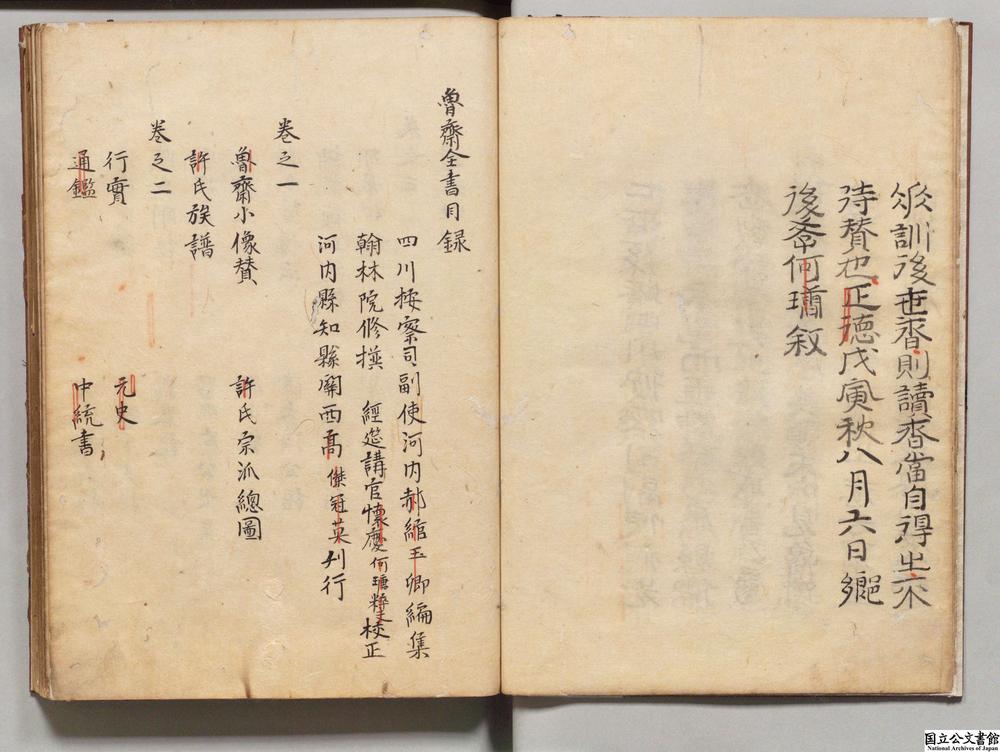 訓後世者則讀者當自得之不
待贊也正德戊寅秋八月六日鄉
後學何瑭敘
魯齋全書目錄
四川按察司副使河內郝綰玉卿編集
翰林院修撰 經筵講官懷慶何瑭粹夫校正
河內縣知縣關西高傑冠英刋行
卷之一
魯齋小像贊 許氏宗派總圖
許氏族譜
卷之二
行實 元史
通鑑 中統書
国立公文書館
National Archives of Japan